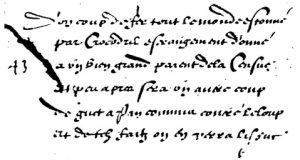 D'un coup de fer tout le monde estonné
par Crocodil estrangement donné
43 a un bien grand parent de la Sensue
Et peu apres sera un autre coup
de guet a pan commis contre le loup
et de telz faitz on en verra lissue